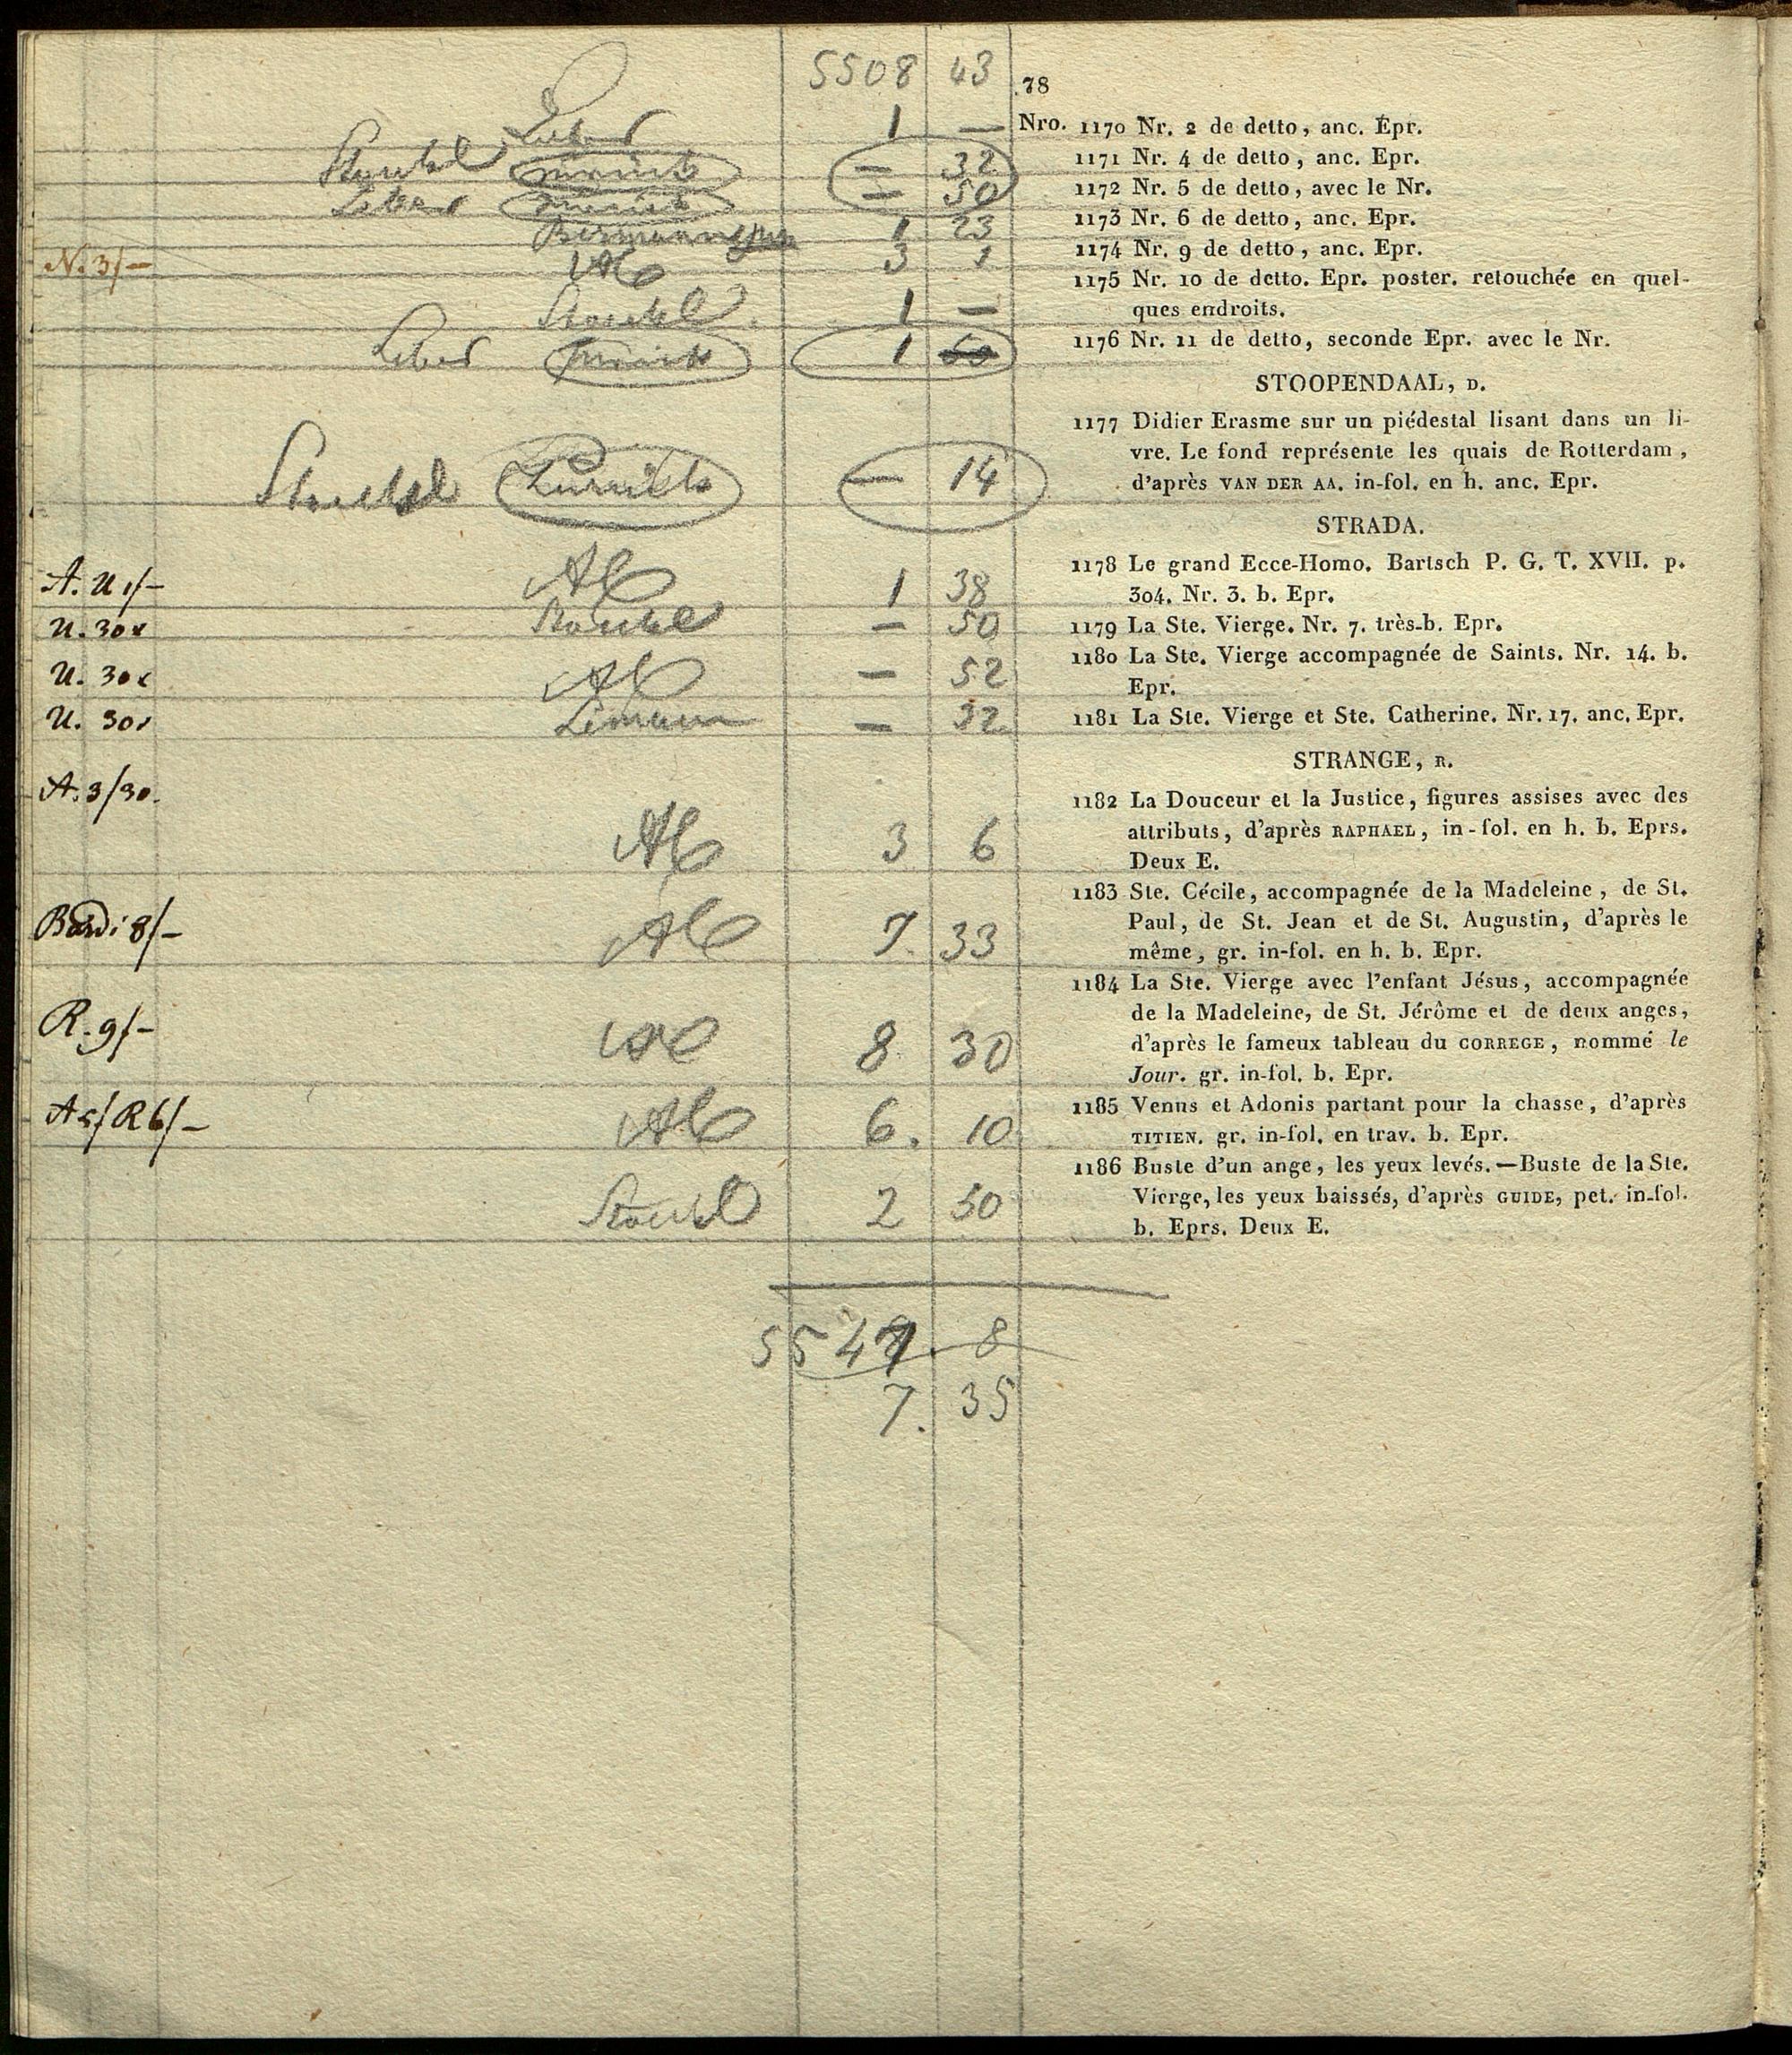 5508 43
78
1 —
Nro. 1170 Nr. 2 de detto, anc. Epr.
Stöckl — 32
1171 Nr. 4 de detto, anc. Epr.
— 50
1172 Nr. 5 de detto, avec le Nr.
1 23
1173 Nr. 6 de detto, anc. Epr.
N. 3/— Alb 3 1
1174 Nr. 9 de detto, anc. Epr.
Stöckl 1 —
1175 Nr. 10 de detto. Epr. poster. retouchée en quel-
ques endroits.
1
1176 Nr. 11 de detto, seconde Epr. avec le Nr.
STOOPENDAAL, D.
1177 Didier Erasme sur un piédestal lisant dans un li-
vre. Le fond représente les quais de Rotterdam,
d'après VAN DER AA. in-fol. en h. anc. Epr.
Stöckl — 14
STRADA.
A. U 1/— Alb 1 38
1178 Le grand Ecce-Homo. Bartsch P. G. T. XVII. p.
304. Nr. 3. b. Epr.
U. 30x Stöckl — 50
1179 La Ste. Vierge. Nr. 7. très-b. Epr.
U. 30x Alb — 52
1180 La Ste. Vierge accompagnée de Saints. Nr. 14. b.
Epr.
U. 30x — 32
1181 La Ste. Vierge et Ste. Catherine. Nr. 17. anc. Epr.
STRANGE, R.
A. 3/30. Alb 3 6
1182 La Douceur et la Justice, figures assises avec des
attributs, d'après RAPHAEL, in-fol. en h. b. Eprs.
Deux E.
Bardi 8/— Alb 7. 33
1183 Ste. Cécile, accompagnée de la Madeleine, de St.
Paul, de St. Jean et de St. Augustin, d'après le
même, gr. in-fol. en h. b. Epr.
R. 9/— Alb 8 30
1184 La Ste. Vierge avec l'enfant Jésus, accompagnée
de la Madeleine, de St. Jérôme et de deux anges,
d'après le fameux tableau du CORREGE, nommé le
Jour. gr. in-fol. b. Epr.
A 5/ R 6/— Alb 6. 10
1185 Venus et Adonis partant pour la chasse, d'après
TITIEN. gr. in-fol. en trav. b. Epr.
Stöckl 2 50
1186 Buste d'un ange, les yeux levés.—Buste de la Ste.
Vierge, les yeux baissés, d'après GUIDE, pet. in-fol.
b. Eprs. Deux E.
5547. 8
7. 35